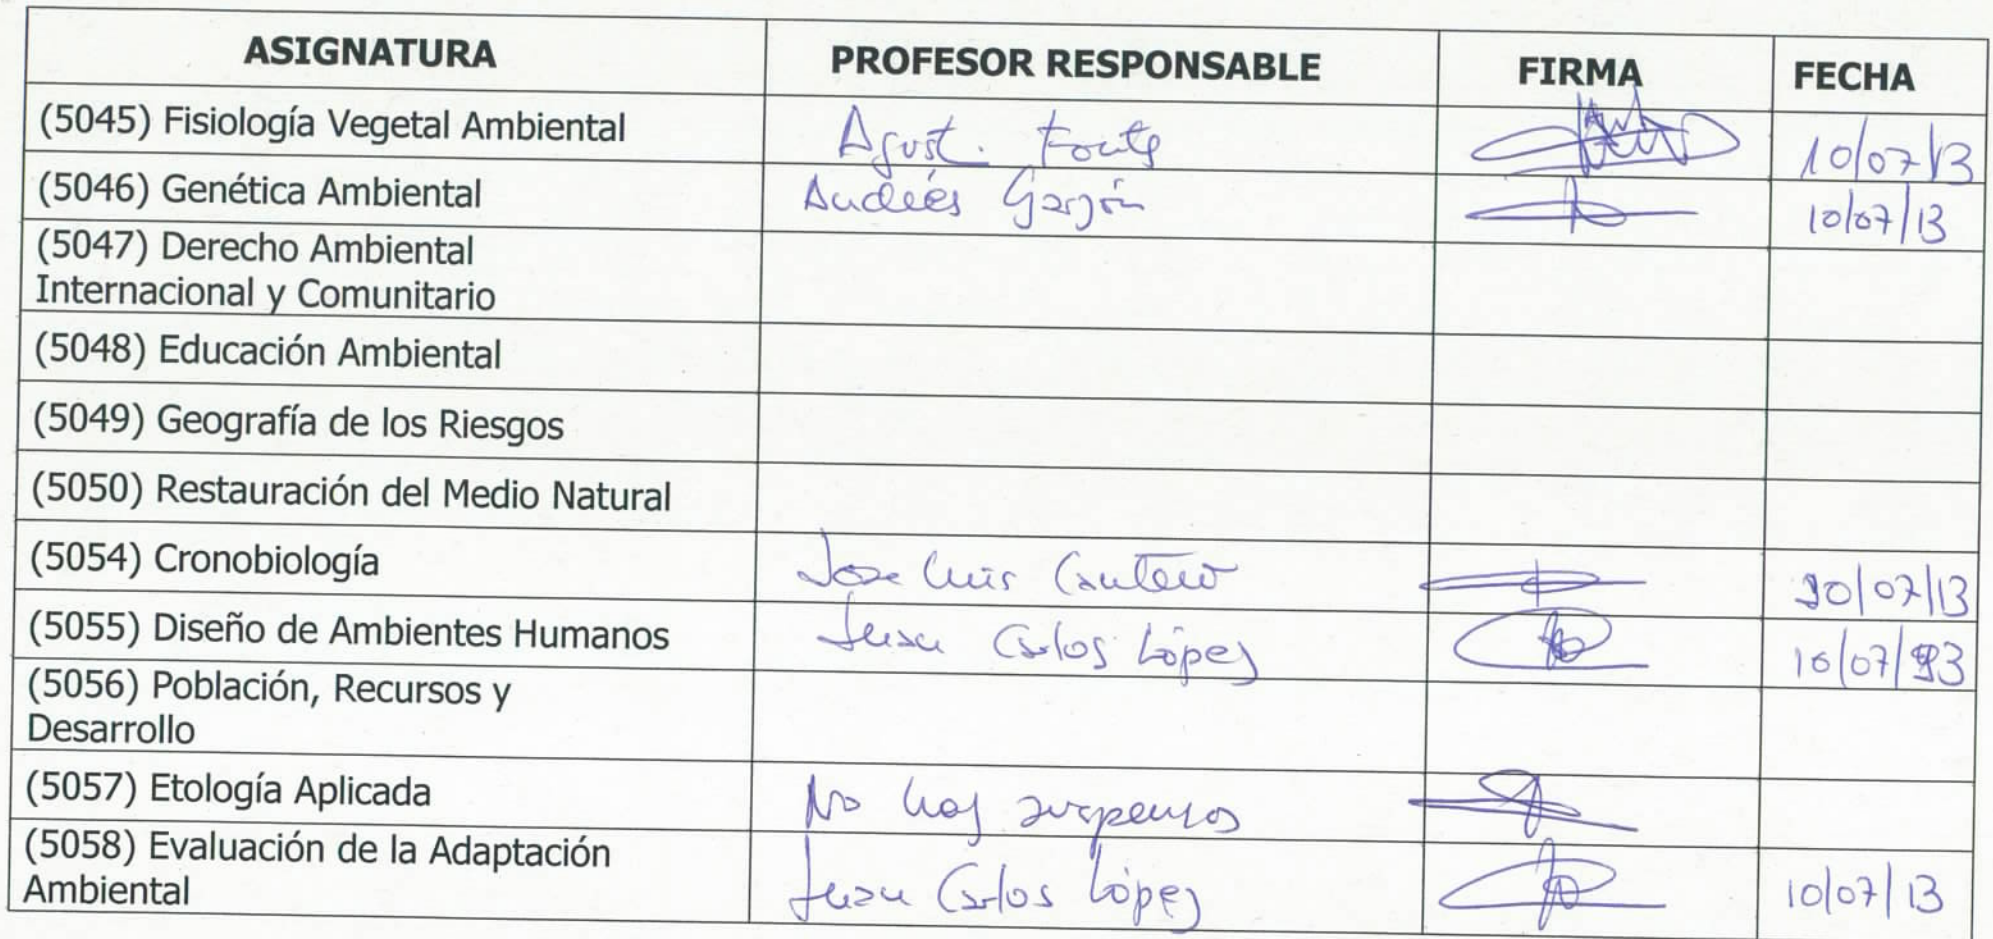 ASIGNATURA PROFESOR RESPONSABLE FIRMA FECHA
(5045) Fisiología Vegetal Ambiental Agust. 10/07/13
(5046) Genética Ambiental Andrés Garzón 10/07/13
(5047) Derecho Ambiental
Internacional y Comunitario
(5048) Educación Ambiental
(5049) Geografía de los Riesgos
(5050) Restauración del Medio Natural
(5054) Cronobiología Jose Luis Cantero 10/07/13
(5055) Diseño de Ambientes Humanos Juan Carlos López 10/07/
(5056) Población, Recursos y
Desarrollo
(5057) Etología Aplicada No hay suspensos
(5058) Evaluación de la Adaptación
Ambiental Juan Carlos López 10/07/13